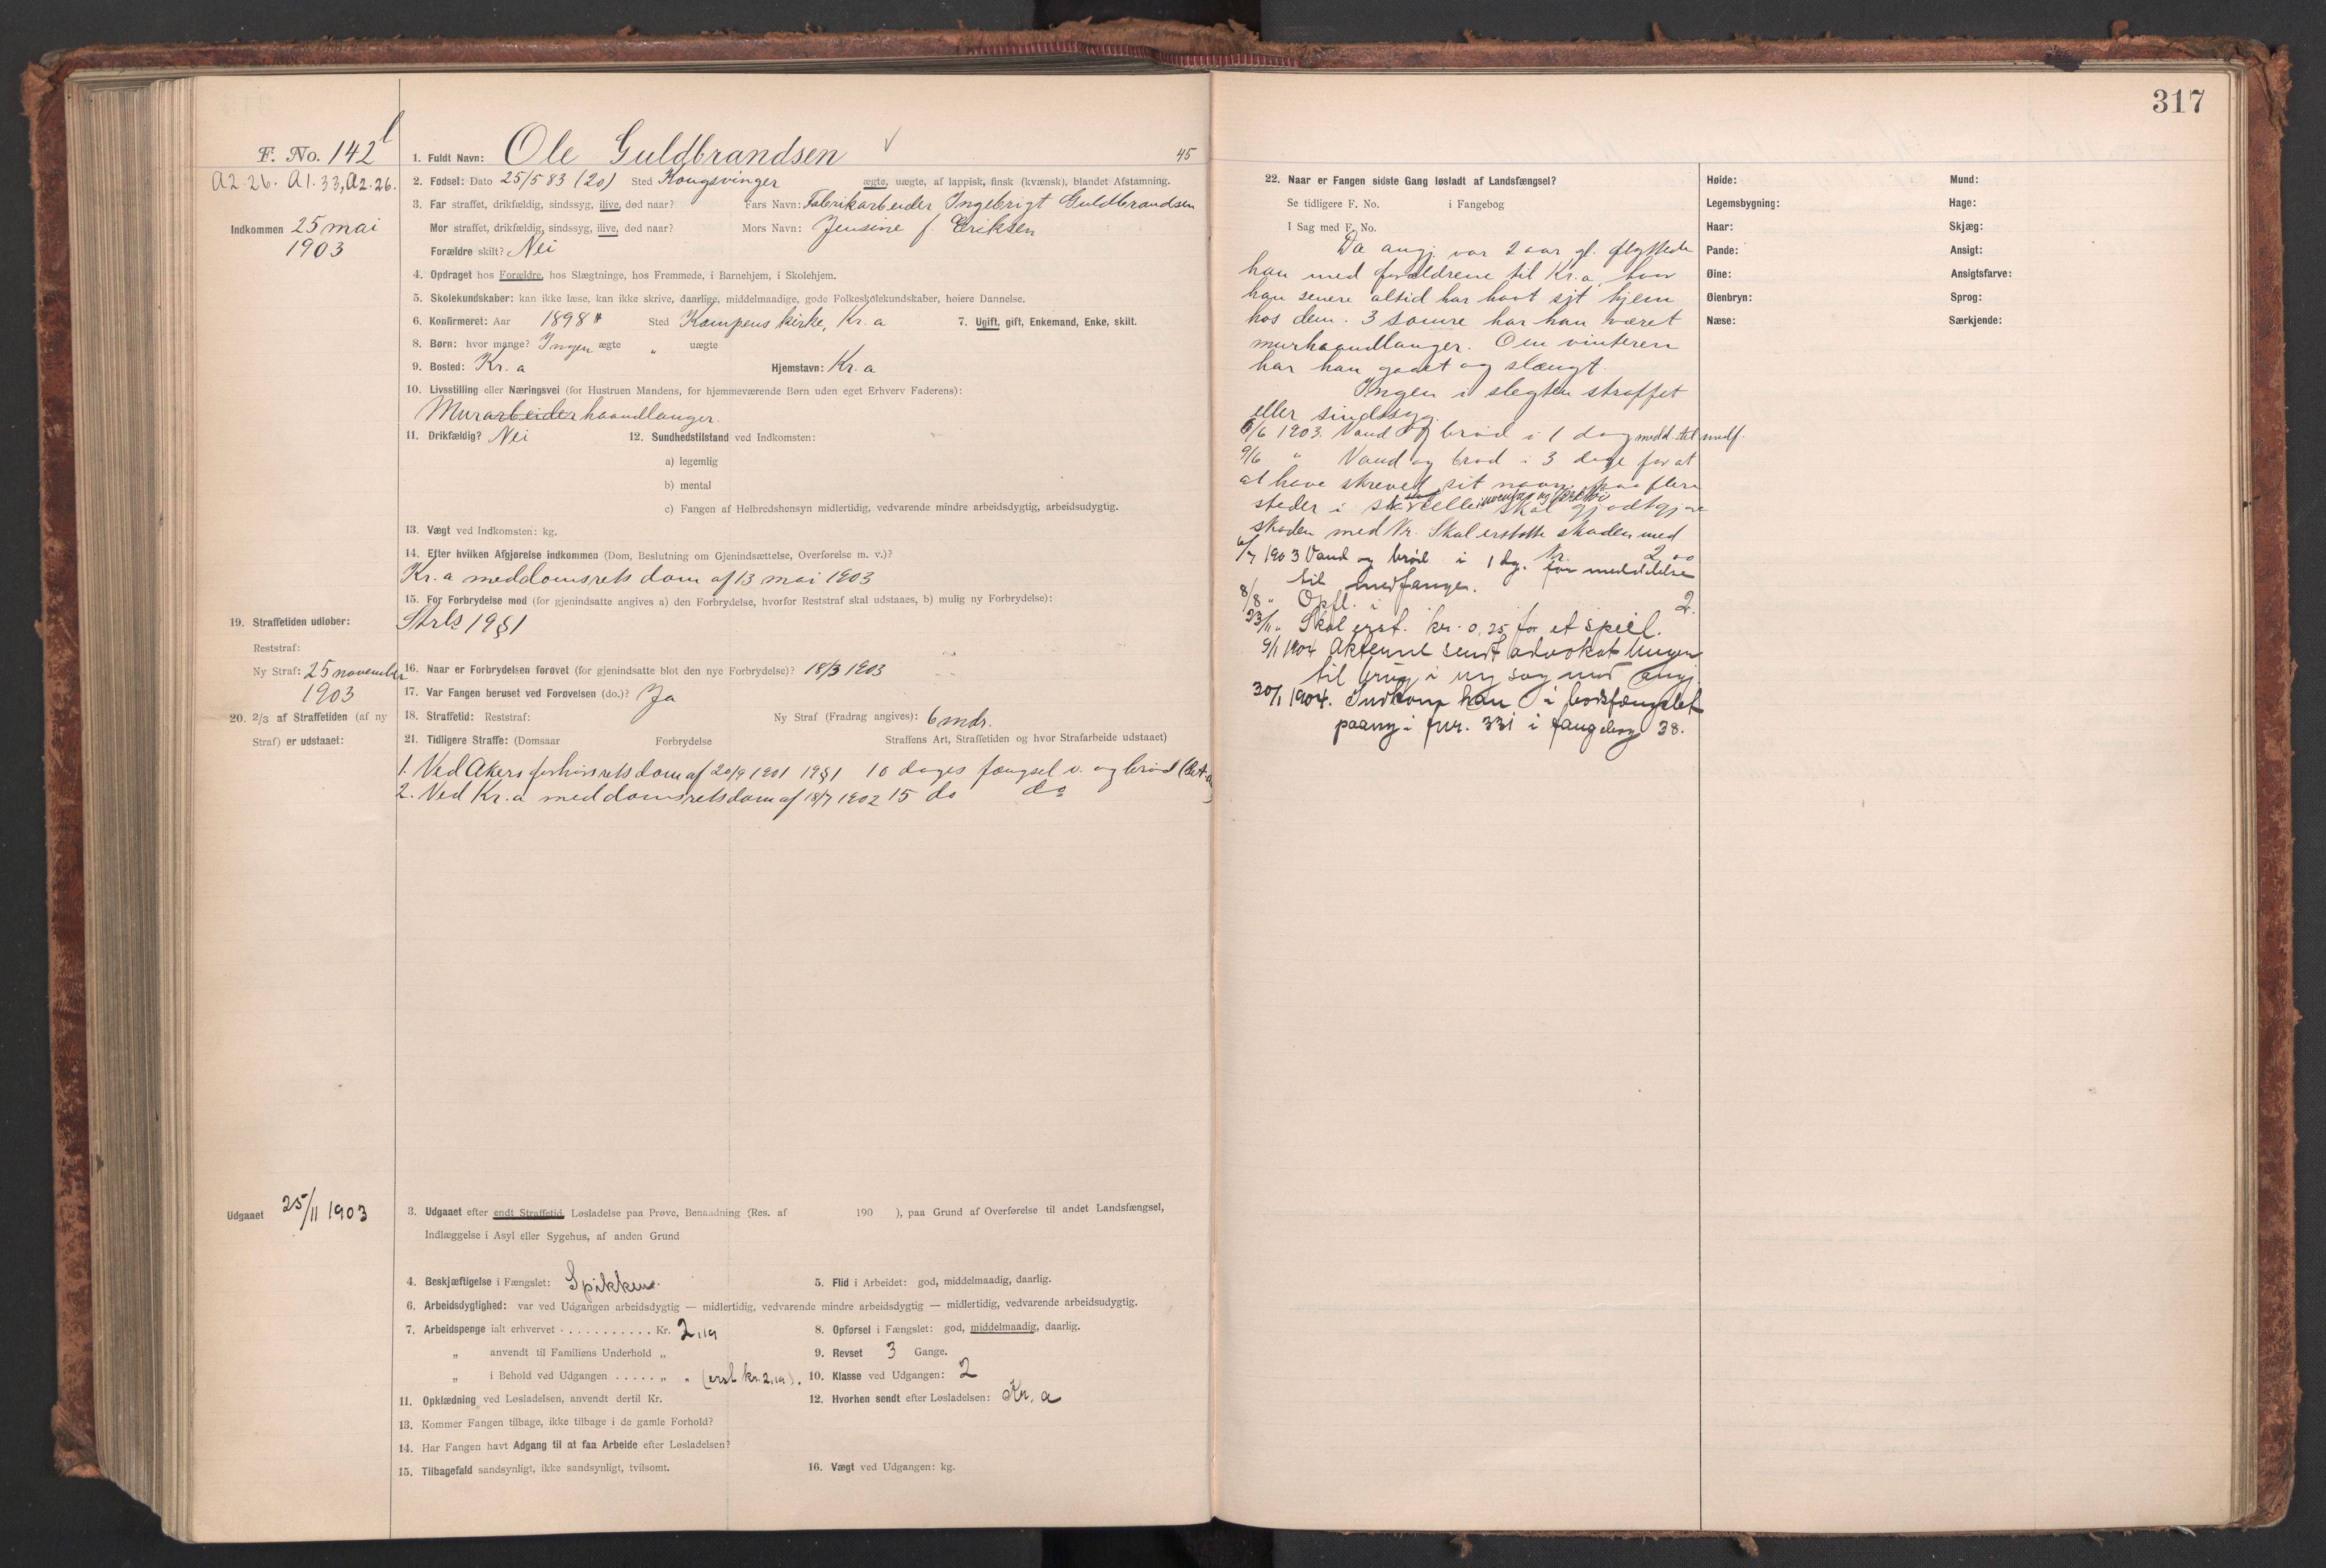 317
F. No. 142 l
A2.26. A1.33, A2.26.
Indkommen 25 mai
1903
1. Fuldt Navn: Ole Guldbrandsen
45
2. Fødsel: Dato 25/5 83 (20) Sted Kongsvinger ægte, uægte, af lappisk, finsk (kvænsk), blandet Afstamning.
3. Far straffet, drikfældig, sindssyg, ilive, død naar? Fars Navn: Fabrikarbeider Ingebrigt Guldbrandsen
Mor straffet, drikfældig, sindssyg, ilive, død naar? Mors Navn: Jensine f. Eriksen
Forældre skilt? Nei
4. Opdraget hos Forældre, hos Slægtninge, hos Fremmede, i Barnehjem, i Skolehjem.
5. Skolekundskaber: kan ikke læse, kan ikke skrive, daarlige, middelmaadige, gode Folkeskolekundskaber, høiere Dannelse.
6. Konfirmeret: Aar 1898 Sted Kampens kirke, Kr.a 7. Ugift, gift, Enkemand, Enke, skilt.
8. Børn: hvor mange? Ingen ægte „ uægte
9. Bosted: Kr.a Hjemstavn: Kr.a
10. Livsstilling eller Næringsvei (for Hustruen Mandens, for hjemmeværende Børn uden eget Erhverv Faderens):
Murarbeider haandlanger.
11. Drikfældig? Nei 12. Sundhedstilstand ved Indkomsten:
a) legemlig
b) mental
c) Fangen af Helbredshensyn midlertidig, vedvarende mindre arbeidsdygtig, arbeidsudygtig.
13. Vægt ved Indkomsten: kg.
14. Efter hvilken Afgjørelse indkommen (Dom, Beslutning om Gjenindsættelse, Overførelse m. v.)?
Kr.a meddomsrets dom af 13 mai 1903
15. For Forbrydelse mod (for gjenindsatte angives a) den Forbrydelse, hvorfor Reststraf skal udstaaes, b) mulig ny Forbrydelse):
Strls 19 § 1
19. Straffetiden udløber:
Reststraf:
Ny Straf: 25 november
1903
16. Naar er Forbrydelsen forøvet (for gjenindsatte blot den nye Forbrydelse)? 18/3 1903
17. Var Fangen beruset ved Forøvelsen (do.)? Ja
20. 2/3 af Straffetiden (af ny
Straf) er udstaaet:
18. Straffetid: Reststraf: Ny Straf (Fradrag angives): 6 mdr.
21. Tidligere Straffe: (Domsaar Forbrydelse Straffens Art, Straffetiden og hvor Strafarbeide udstaaet)
1. Ved Akers forhørsrets dom af 20/9 1901 19 § 1 10 dages fængsel v. og brød
2. Ved Kr.a meddomsrets dom af 18/7 1902 15 do do
Udgaaet 25/11 1903
3. Udgaaet efter endt Straffetid, Løsladelse paa Prøve, Benaadning (Res. af 190 ), paa Grund af Overførelse til andet Landsfængsel,
Indlæggelse i Asyl eller Sygehus, af anden Grund
4. Beskjæftigelse i Fængslet: Spikker. 5. Flid i Arbeidet: god, middelmaadig, daarlig.
6. Arbeidsdygtighed: var ved Udgangen arbeidsdygtig — midlertidig, vedvarende mindre arbeidsdygtig — midlertidig, vedvarende arbeidsudygtig.
7. Arbeidspenge ialt erhvervet . . . . . . . . . . . Kr. 2,19 8. Opførsel i Fængslet: god, middelmaadig, daarlig.
„ anvendt til Familiens Underhold „ 9. Revset 3 Gange.
„ i Behold ved Udgangen . . . . . „ „ (erst. kr. 2,19). 10. Klasse ved Udgangen: 2
11. Opklædning ved Løsladelsen, anvendt dertil Kr. 12. Hvorhen sendt efter Løsladelsen: Kr.a
13. Kommer Fangen tilbage, ikke tilbage i de gamle Forhold?
14. Har Fangen havt Adgang til at faa Arbeide efter Løsladelsen?
15. Tilbagefald sandsynligt, ikke sandsynligt, tvilsomt. 16. Vægt ved Udgangen: kg.
22. Naar er Fangen sidste Gang løsladt af Landsfængsel?
Se tidligere F. No. i Fangebog
I Sag med F. No.
Da angj. var 2 aar gl. flyttede
han med forældrene til Kr.a, hvor
han senere altid har havt sit hjem
hos dem. 3 somre har han været
murhaandlanger. Om vinteren
har han gaaet og slængt.
Ingen i slegten straffet
eller sindssyg.
6/6 1903. Vand og brød i 1 dag medd. til medf.
9/6 " Vand og brød i 3 dage for at
at have skrevet sit navn paa flere
steder i cellen inventar og værktøi skal godtgjøre
skaden med Kr. Skal erstatte skaden med
Kr. 2,00
6/7 1903 Vand og brød i 1 dg. for meddelelse
til medfange.
8/8 " Opfl. i 2.
23/11 " Skal erst. kr. 0,25 for et speil.
9/1 1904 Akterne sendt advokat Unger
til brug i ny sag mod angj.
30/1 1904. Indkom han i bodsfængslet
paany i fnr. 331 i fangebog 38.
Høide: Mund:
Legemsbygning: Hage:
Haar: Skjæg:
Pande: Ansigt:
Øine: Ansigtsfarve:
Øienbryn: Sprog:
Næse: Særkjende: